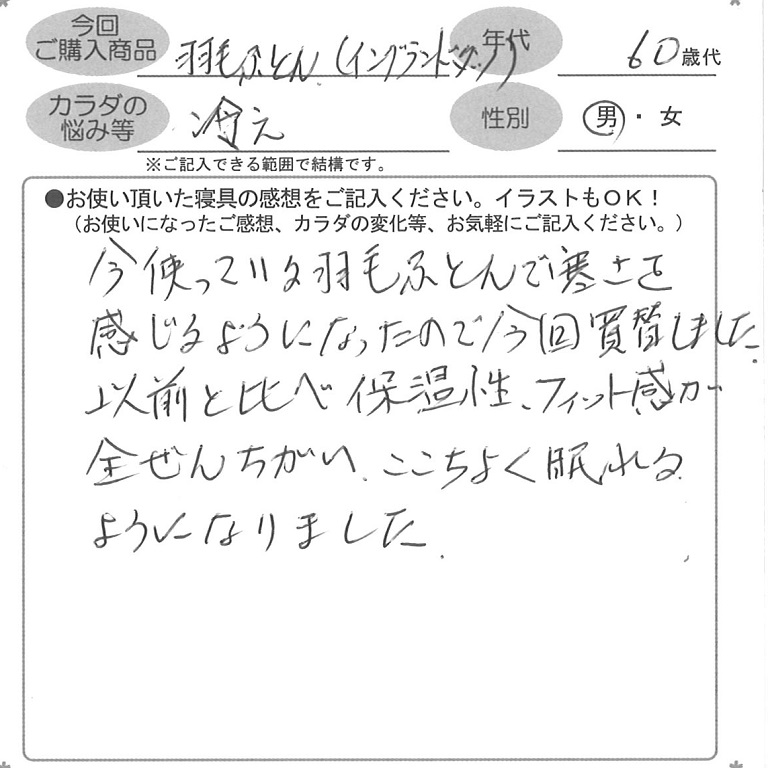 今回
ご購入商品 羽毛ふとん(イングランドダック) 年代 60歳代
カラダの
悩み等 冷え 性別 男・女
※ご記入できる範囲で結構です。
●お使い頂いた寝具の感想をご記入ください。イラストもOK!
(お使いになったご感想、カラダの変化等、お気軽にご記入ください。)
今使っている羽毛ふとんで寒さを
感じるようになったので今回買替しました.
以前と比べ保温性、フィット感が
全ぜんちがい、ここちよく眠れる
ようになりました.